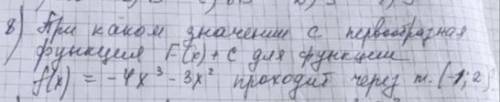 8) При каком значении с первообразная
функция F(x) + C для функции
f(x) = -4x³ - 3x² проходит через т. (-1; 2)